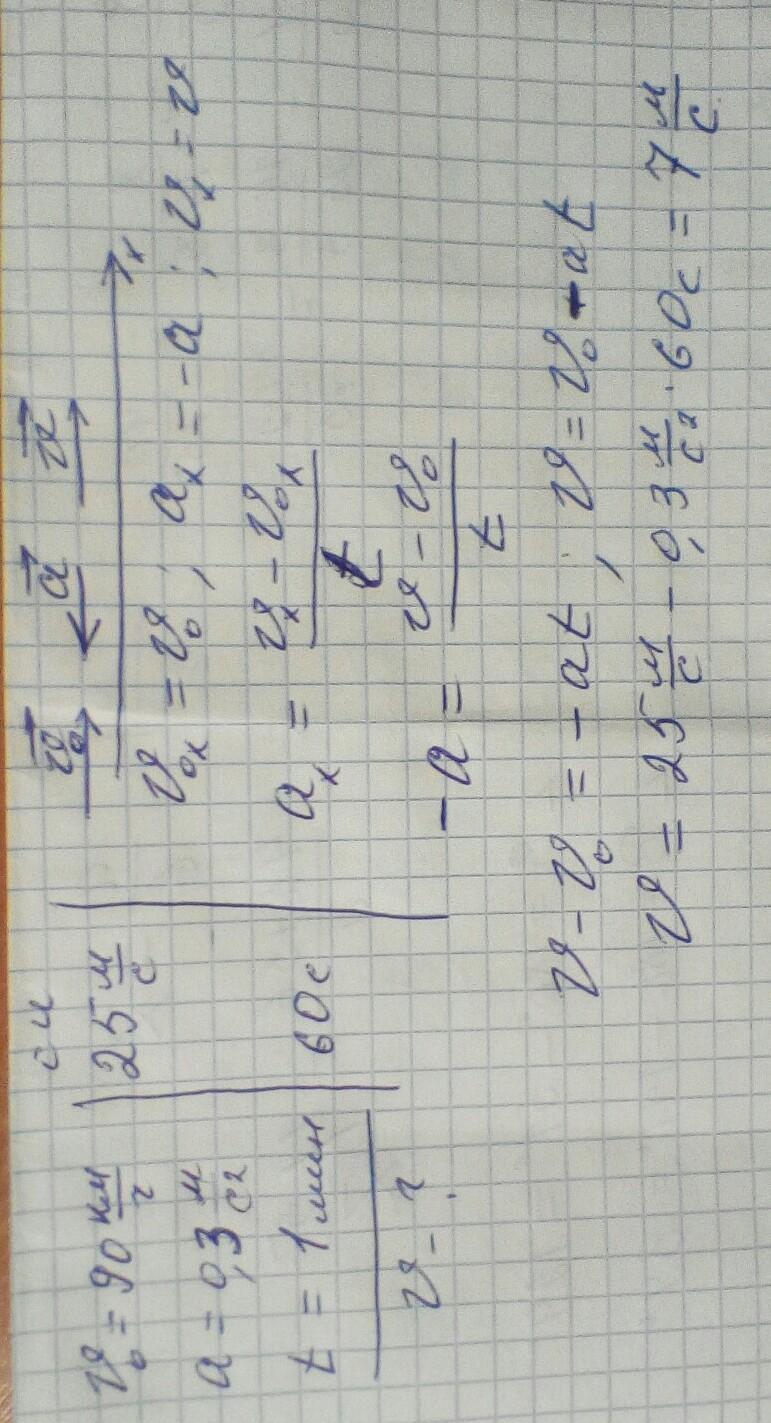 v₀ = 90 км/г
a = 0,3 м/с²
t = 1 мин
v - ?
си
25 м/с
60 с
v₀ a v
x
v₀ₓ = v₀ ; aₓ = -a ; vₓ = v
aₓ = (vₓ - v₀ₓ)/t
-a = (v - v₀)/t
v - v₀ = -at ; v = v₀ - at
v = 25 м/с - 0,3 м/с² · 60 с = 7 м/с